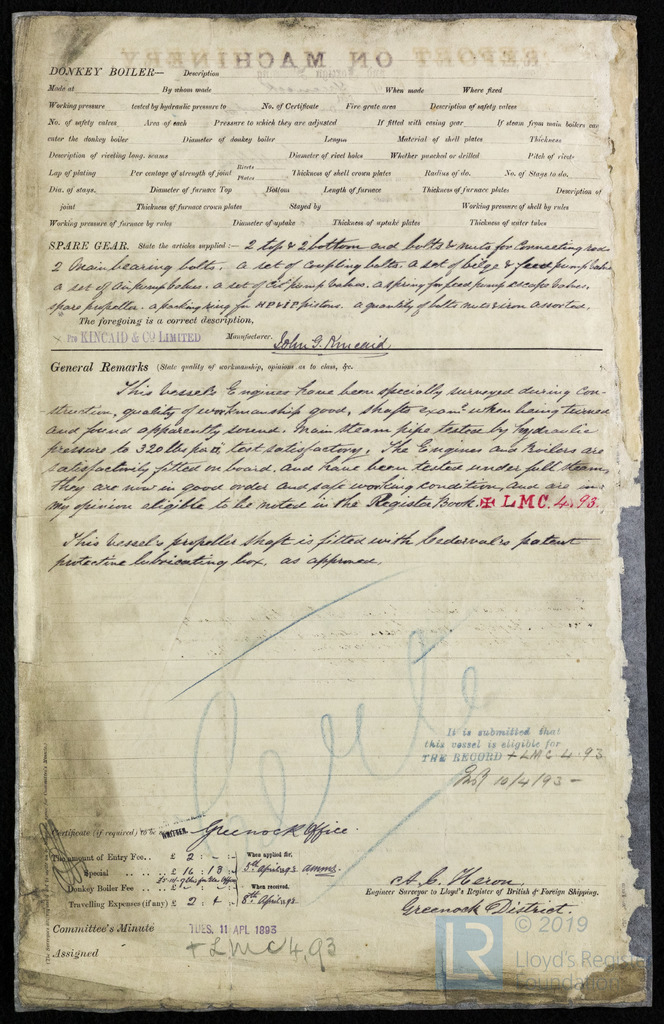 REPORT ON MACHINERY
DONKEY BOILER— Description
Made at By whom made When made Where fixed
Working pressure tested by hydraulic pressure to No. of Certificate Fire grate area Description of safety valves
No. of safety valves Area of each Pressure to which they are adjusted If fitted with easing gear If steam from main boilers can
enter the donkey boiler Diameter of donkey boiler Length Material of shell plates Thickness
Description of riveting long. seams Diameter of rivet holes Whether punched or drilled Pitch of rivets
Lap of plating Per centage of strength of joint Rivets Plates Thickness of shell crown plates Radius of do. No. of Stays to do.
Dia. of stays. Diameter of furnace Top Bottom Length of furnace Thickness of furnace plates Description of
joint Thickness of furnace crown plates Stayed by Working pressure of shell by rules
Working pressure of furnace by rules Diameter of uptake Thickness of uptake plates Thickness of water tubes
SPARE GEAR. State the articles supplied:— 2 top & 2 bottom end bolts & nuts for Connecting rod
2 Main bearing bolts. a set of coupling bolts. a set of bilge & feed pump valves
a set of Air pump valves. a set of Cir. pump valves. a spring for feed pump escape valves.
spare propeller. a packing ring for HP & IP pistons. a quantity of bolts nuts & iron assorted.
The foregoing is a correct description,
Pro KINCAID & Co LIMITED Manufacturer. John G. Kincaid.
General Remarks (State quality of workmanship, opinions as to class, &c.
This vessel's Engines have been specially surveyed during con-
struction, quality of workmanship good, shafts examd when being turned
and found apparently sound. Main steam pipe tested by hydraulic
pressure to 320 lbs per □", test satisfactory. The Engines and Boilers are
satisfactorily fitted on board. And have been tested under full steam,
they are now in good order and safe working condition, and are in
my opinion eligible to be noted in the Register Book. ✠ LMC. 4.93.
This vessel's propeller shaft is fitted with patent
protective lubricating box, as approved.
It is submitted that
this vessel is eligible for
THE RECORD + LMC 4.93
10/4/93
Certificate (if required) to be WRITTEN Greenock Office.
The amount of Entry Fee.. £ 2 : - : When applied for,
Special .. £ 16 : 13 : 5th April 1893
Donkey Boiler Fee £ When received,
Travelling Expenses (if any) £ 2 : 4 : 8th April 1893
A. C. Heron.
Engineer Surveyor to Lloyd's Register of British & Foreign Shipping.
Greenock District.
Committee's Minute TUES. 11 APL 1893
Assigned + LMC 4.93
LR © 2019
Lloyd's Register
Foundation